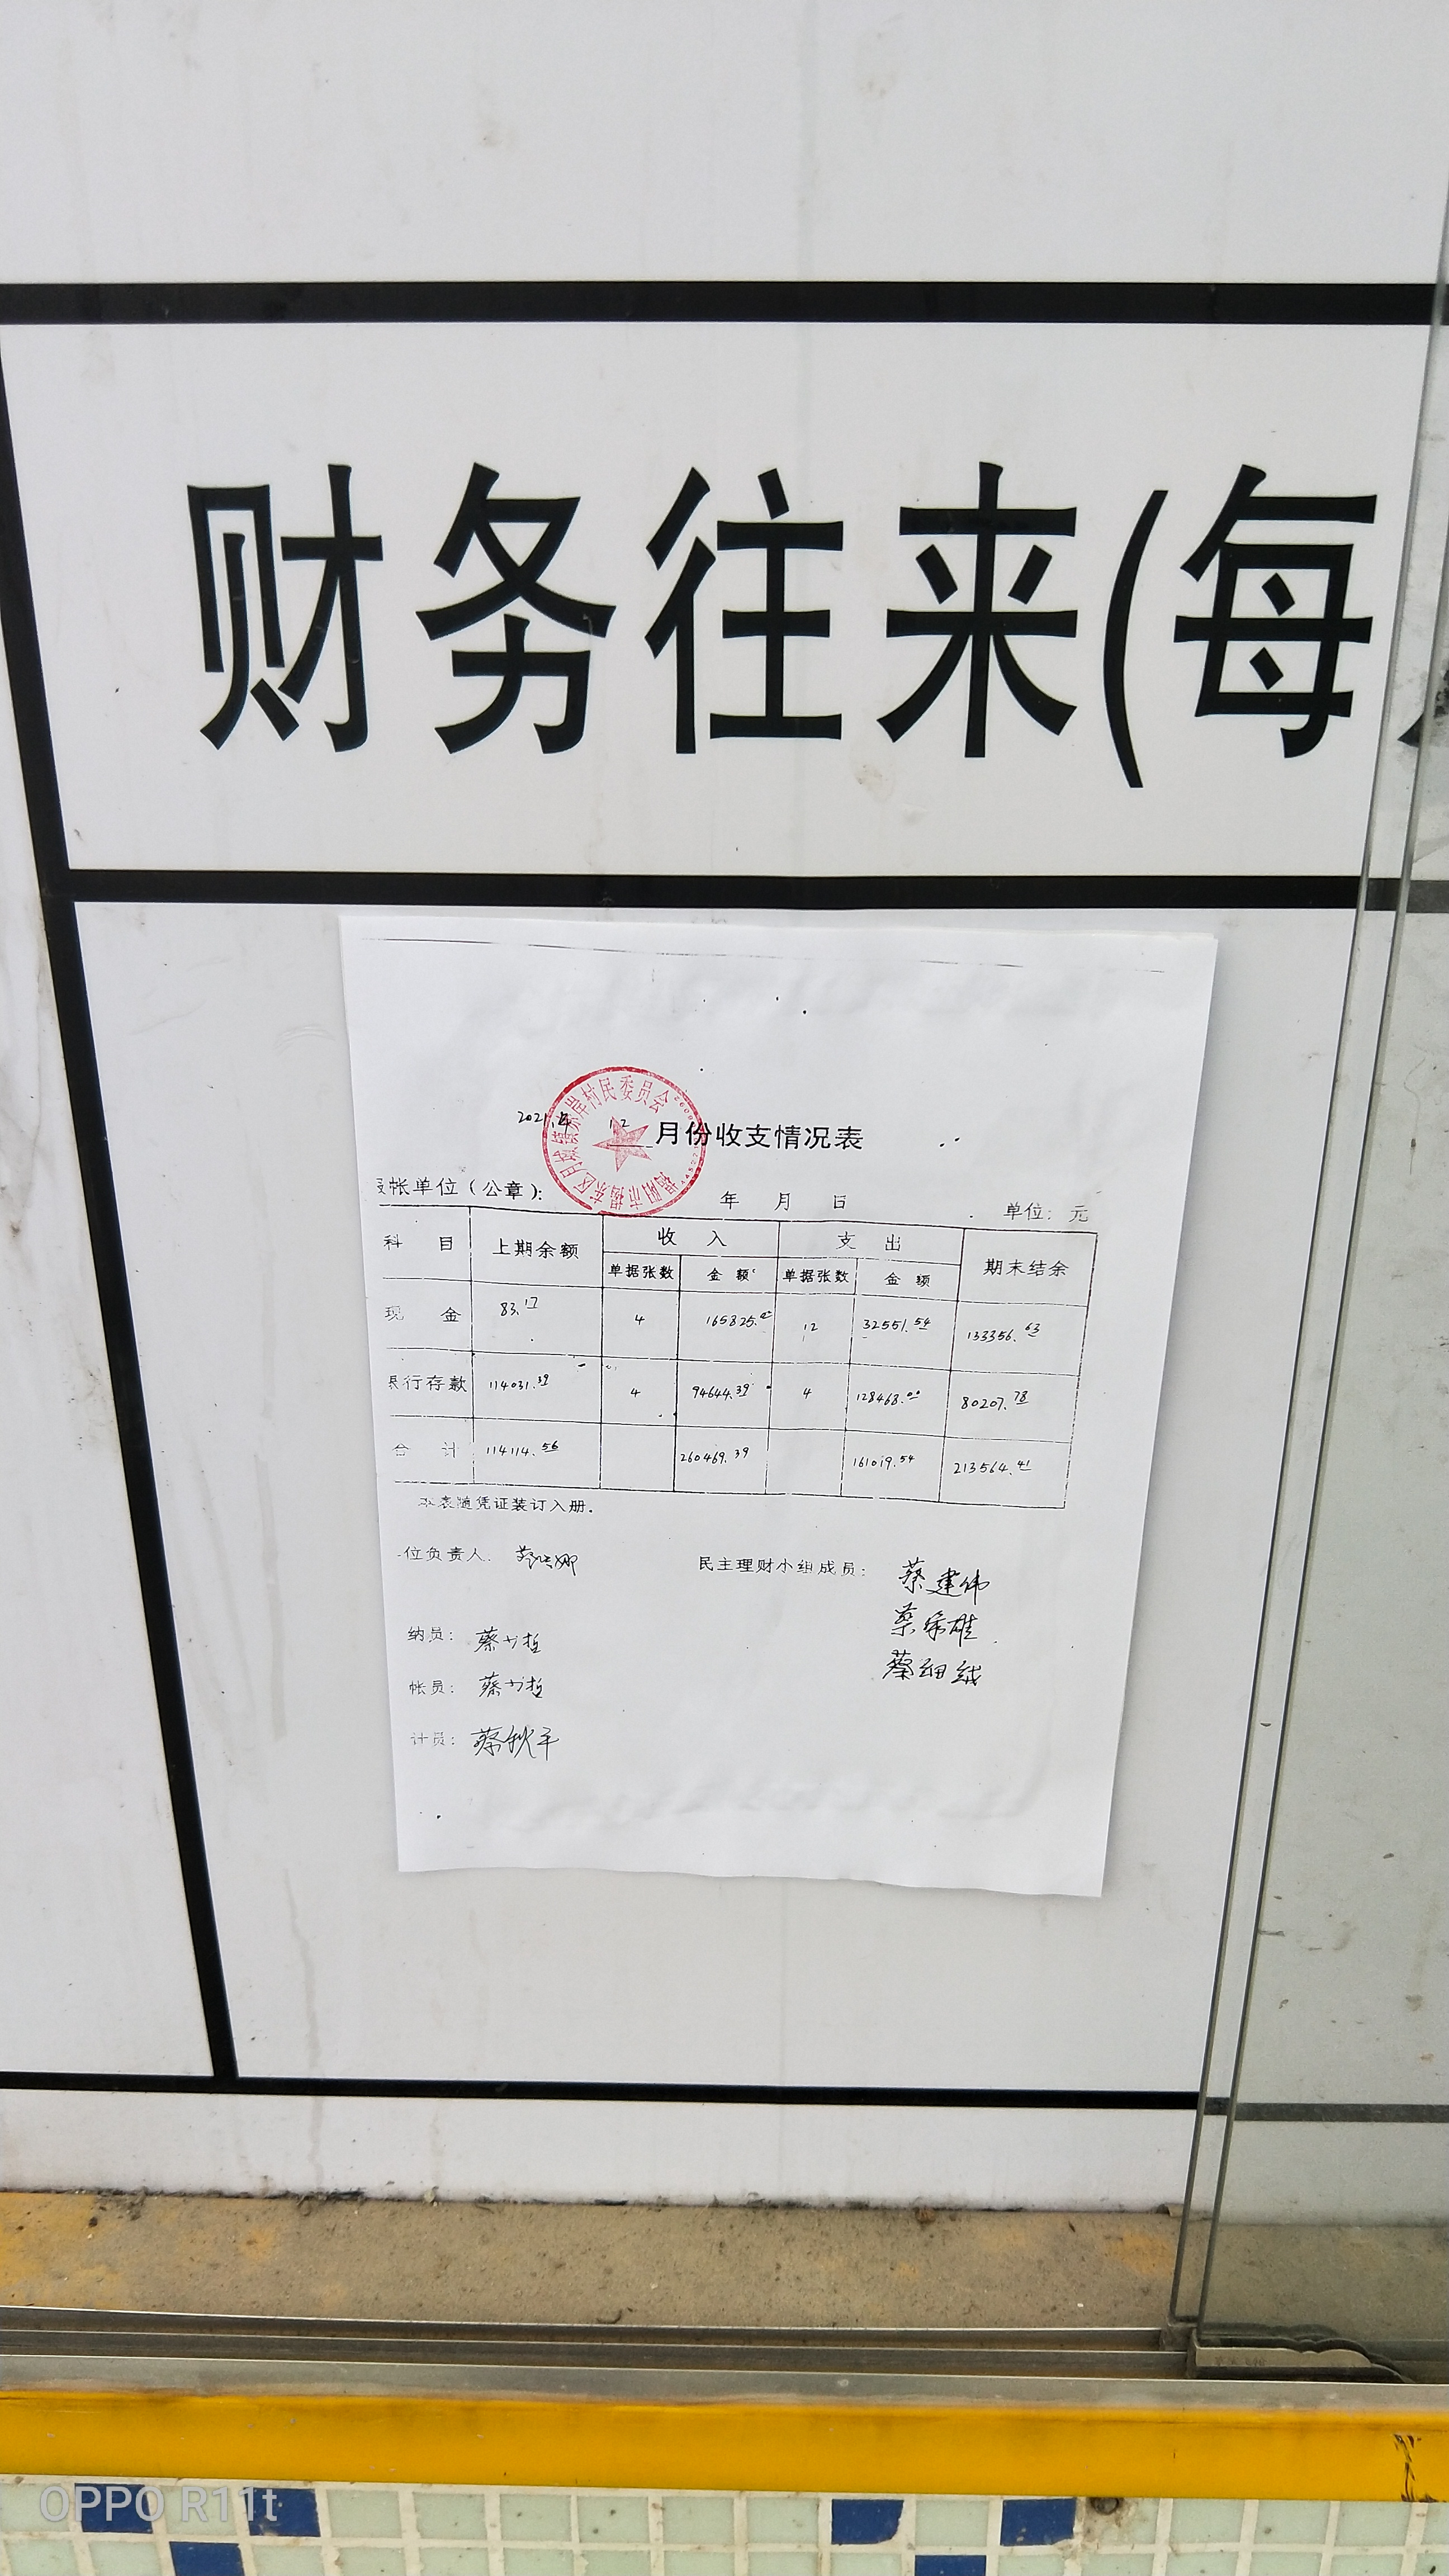 财务往来(每
2021.年 12 月份收支情况表
村民委员会
帐单位(公章): 年 月 日 单位: 元
科 目 上期余额 收 入 支 出 期末结余
单据张数 金 额 单据张数 金 额
现 金 83.17 4 165825.00 12 32551.54 133356.63
行存款 114031.39 4 94644.39 4 128468.00 80207.78
合 计 114114.56 260469.39 161019.54 213564.41
本表随凭证装订入册.
位负责人. 民主理财小组成员: 蔡建伟
蔡 雄
纳员: 蔡 哲 蔡细绒
帐员: 蔡 哲
计员: 蔡秋平
OPPO R11t